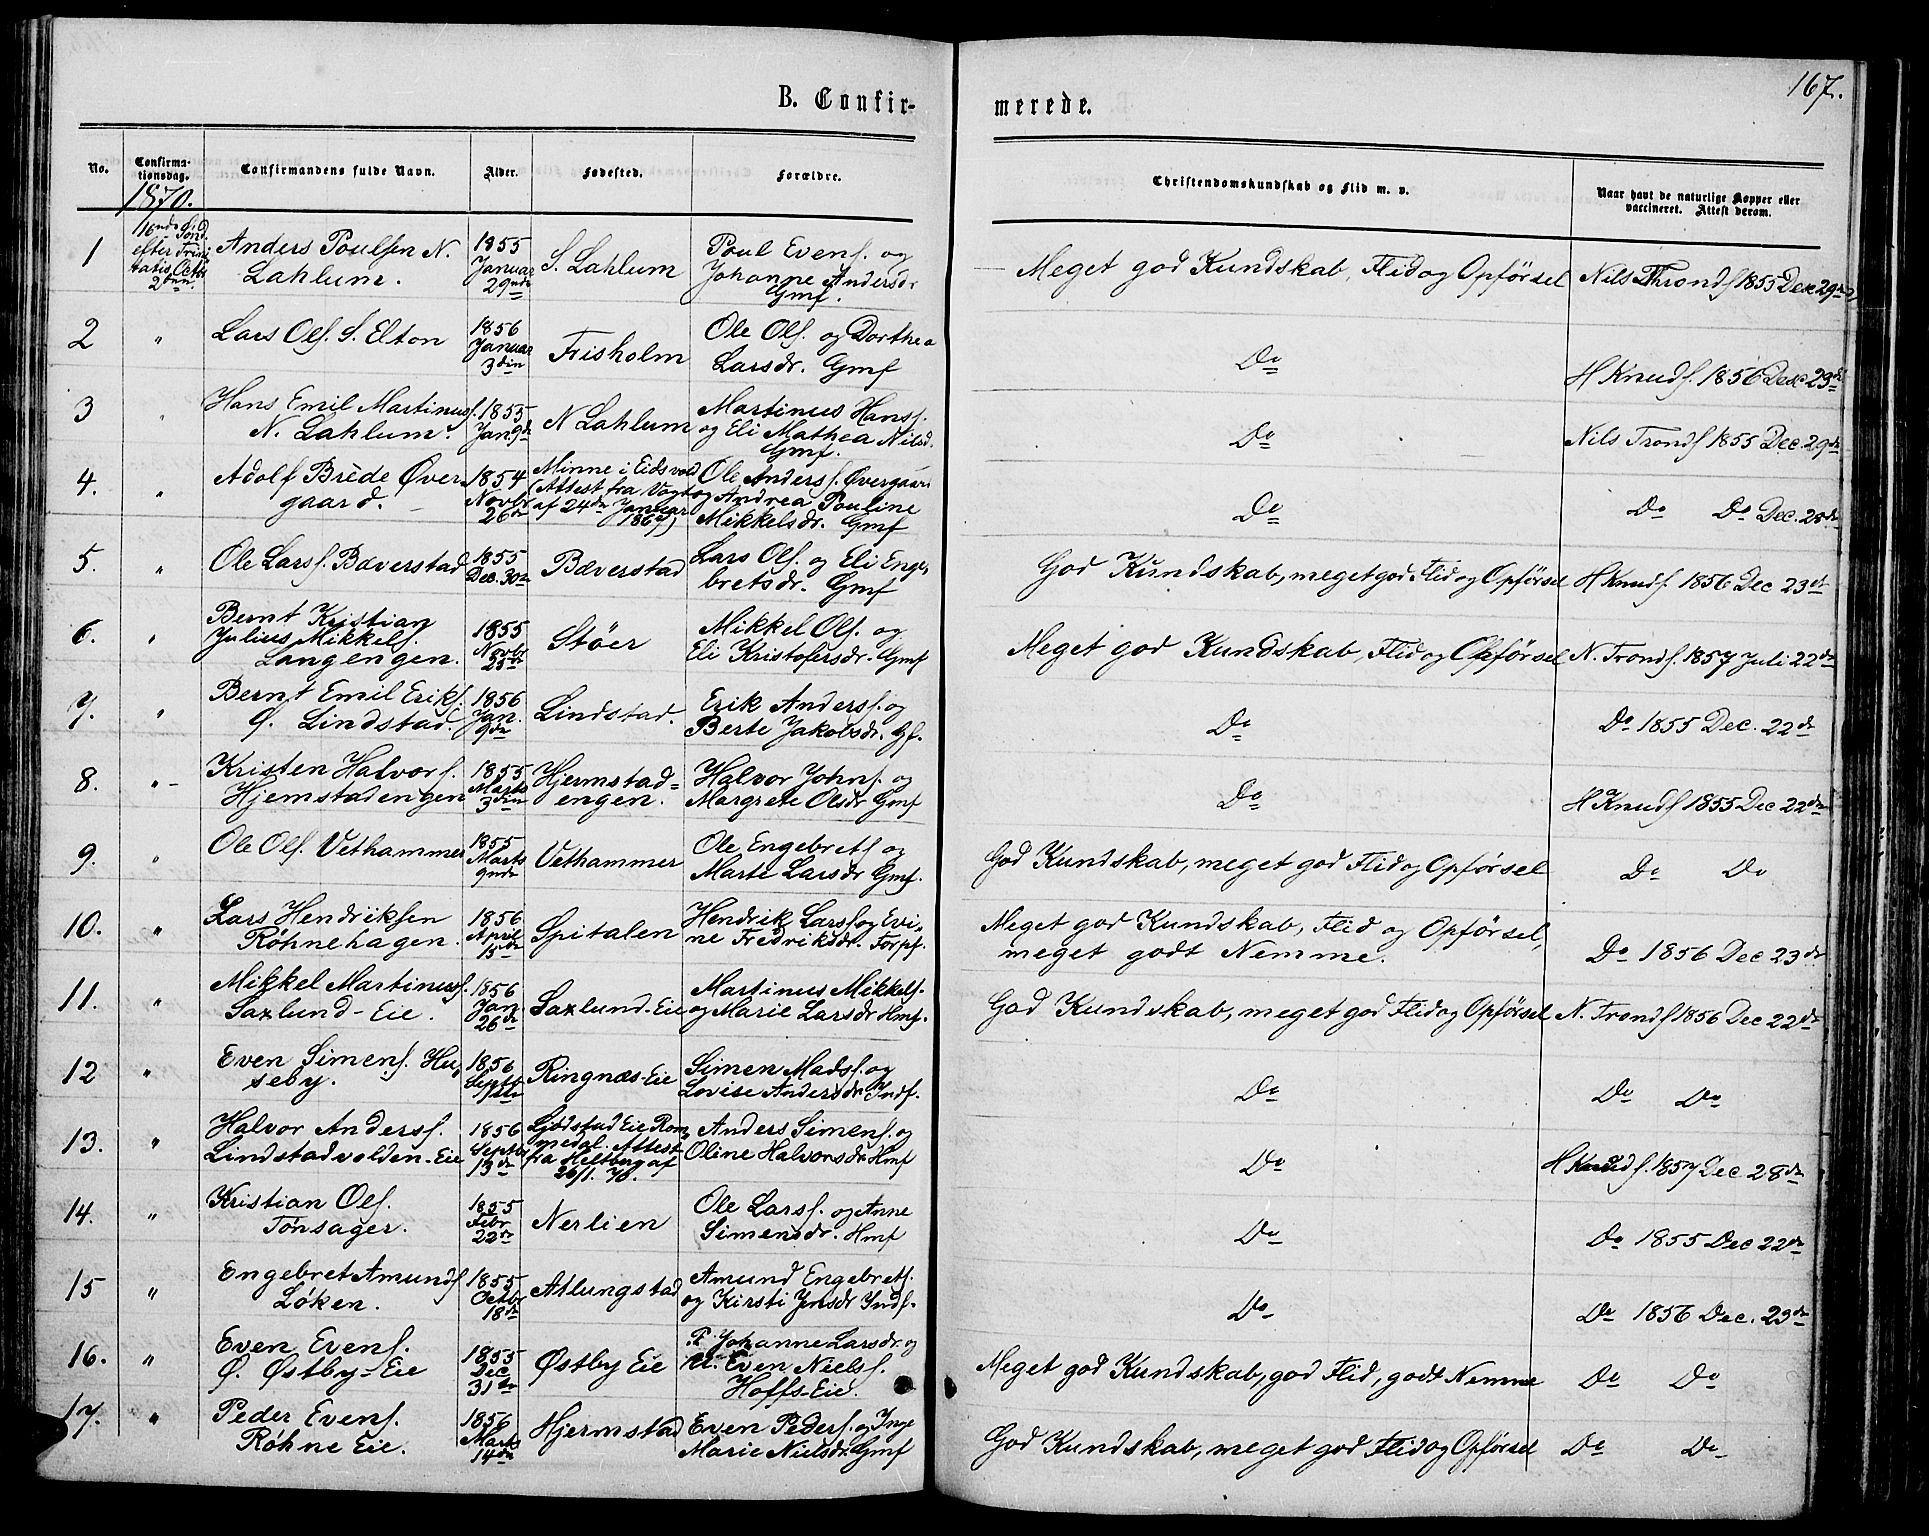 167.
B. Confir-
merede.
No.
Confirma-
tionsdag.
Confirmandens fulde Navn.
Alder.
Fødested.
Forældre.
Christendomskundskab og Flid m. v.
Naar havt de naturlige Kopper eller
vaccineret. Attest derom.
1870.
1
16nde Sönd.
efter Trini
tatis Octbr
2den
Anders Poulsen N.
Lahlum.
1855
Januar
29nde
S. Lahlum
Poul Evens. og
Johanne Andersdr
Gmf.
Meget god Kundskab, Flid og Opförsel
Nils Throndf 1855 Dec 29de
2
"
Lars Ols. S. Elton
1856
Januar
3din
Frisholm
Ole Ols. og Dorthea
Larsdr. Gmf
Do
H Knuds. 1856 Dec 23de
3
"
Hans Emil Martinus.
N. Lahlum.
1855
Jan. 9de
N Lahlum
Martinus Hans.
og Eli Mathea Nilsd.
Gmf.
Do
Nils Trondf 1855 Dec. 29de
4.
"
Adolf Brede Över
gaard.
1854
Novbr
26de
Minne i Eidsvold
(Attest fra Vogt
af 24de Januar
Ole Anders. Övergaard
og Andrea Pouline
Mikkelsdr. Gmf
Do
Do Do Dec. 25de
5.
"
Ole Lars. Bæverstad
1855
Dec. 30te
Bæverstad
Lars Ols. og Eli Enge
bretsdr. Gmf
God Kundskab, meget god Flid og Opförsel
H Knuds. 1856 Dec 23de
6.
"
Bernt Kristian
Julius Mikkels.
Langengen.
1855
Novbr
25de
Stöer
Mikkel Ols. og
Eli Kristofersdr. Gmf
Meget god Kundskab, Flid og Opförsel
N. Trondf. 1857 Juli 22de
7.
"
Bernt Emil Eriks.
Ø. Lindstad.
1856
Jan.
9de
Lindstad.
Erik Anders. og
Berte Jakobsdr. Gf.
Do
Do 1855 Dec. 22de
8.
"
Kristen Halvors.
Hjemstadengen
1855
Marts
3din
Hjermstad=
engen.
Halvor Johns. og
Margrete Olsdr Gmf
Do
H Knuds 1855 Dec 22de
9.
"
Ole Ols. Vethammer
1855
Marts
9nde
Vethammer
Ole Engebrets og
Marte Larsdr Gmf.
God Kundskab, meget god Flid og Opförsel
Do Do
10.
"
Lars Hendriksen
Röhnehagen.
1856
April
15de
Spitalen
Hendrik Lars. og Evi,
ne Fredriksdr. Torpf.
Meget god Kundskab, Flid og Opförsel,
meget godt Nemme.
Do 1856 Dec 23de
11.
"
Mikkel Martinus.
Saxlund-Eie.
1856
Jan.
26de
Saxlund-Eie
Martinus Mikkels.
og Marie Larsdr Hmf.
God Kundskab, meget god Flid og Opförsel
N. Trondf 1856 Dec 22de
12
"
Even Simens. Hu,
seby.
1856
Septb
Ringnæs-Eie
Simen Mads. og
Lovise Andersdr Indf.
Do
Do Do
13.
"
Halvor Anders.
Lindstadvolden-Eie
1856
Septb
13de
Ljödstad Eie Rom,
medal. Attest
fra Heltberg af
26/1. 70.
Anders Simens. og
Oline Halvorsdr Hmf
Do
H Knuds. 1857 Dec 28de
14.
"
Kristian Ols.
Tönsager.
1855
Febr
22de
Nerlien
Ole Lars. og Anne
Simensdr. Hmf
Do
Do 1855 Dec 22de
15
"
Engebret Amunds
Löken.
1855
Octbr
18de
Atlungstad
Amund Engebrets.
og Kirsti Jensdr Indf.
Do
Do 1856 Dec. 23de
16.
"
Even Evens.
Ø. Östby-Eie
1855
Dec
31te
Östby Eie
P. Johanne Larsdr. og
U. Even Niels.
Hoffs-Eie.
Meget god Kundskab, god Flid, godt Nemme
Do Do
17.
"
Peder Evens.
Röhne Eie.
1856
Marts
14de
Hjermstad
Even Peders. og Inge
Marie Nielsdr Gmf
God Kundskab, meget god Flid og Opförsel
Do Do